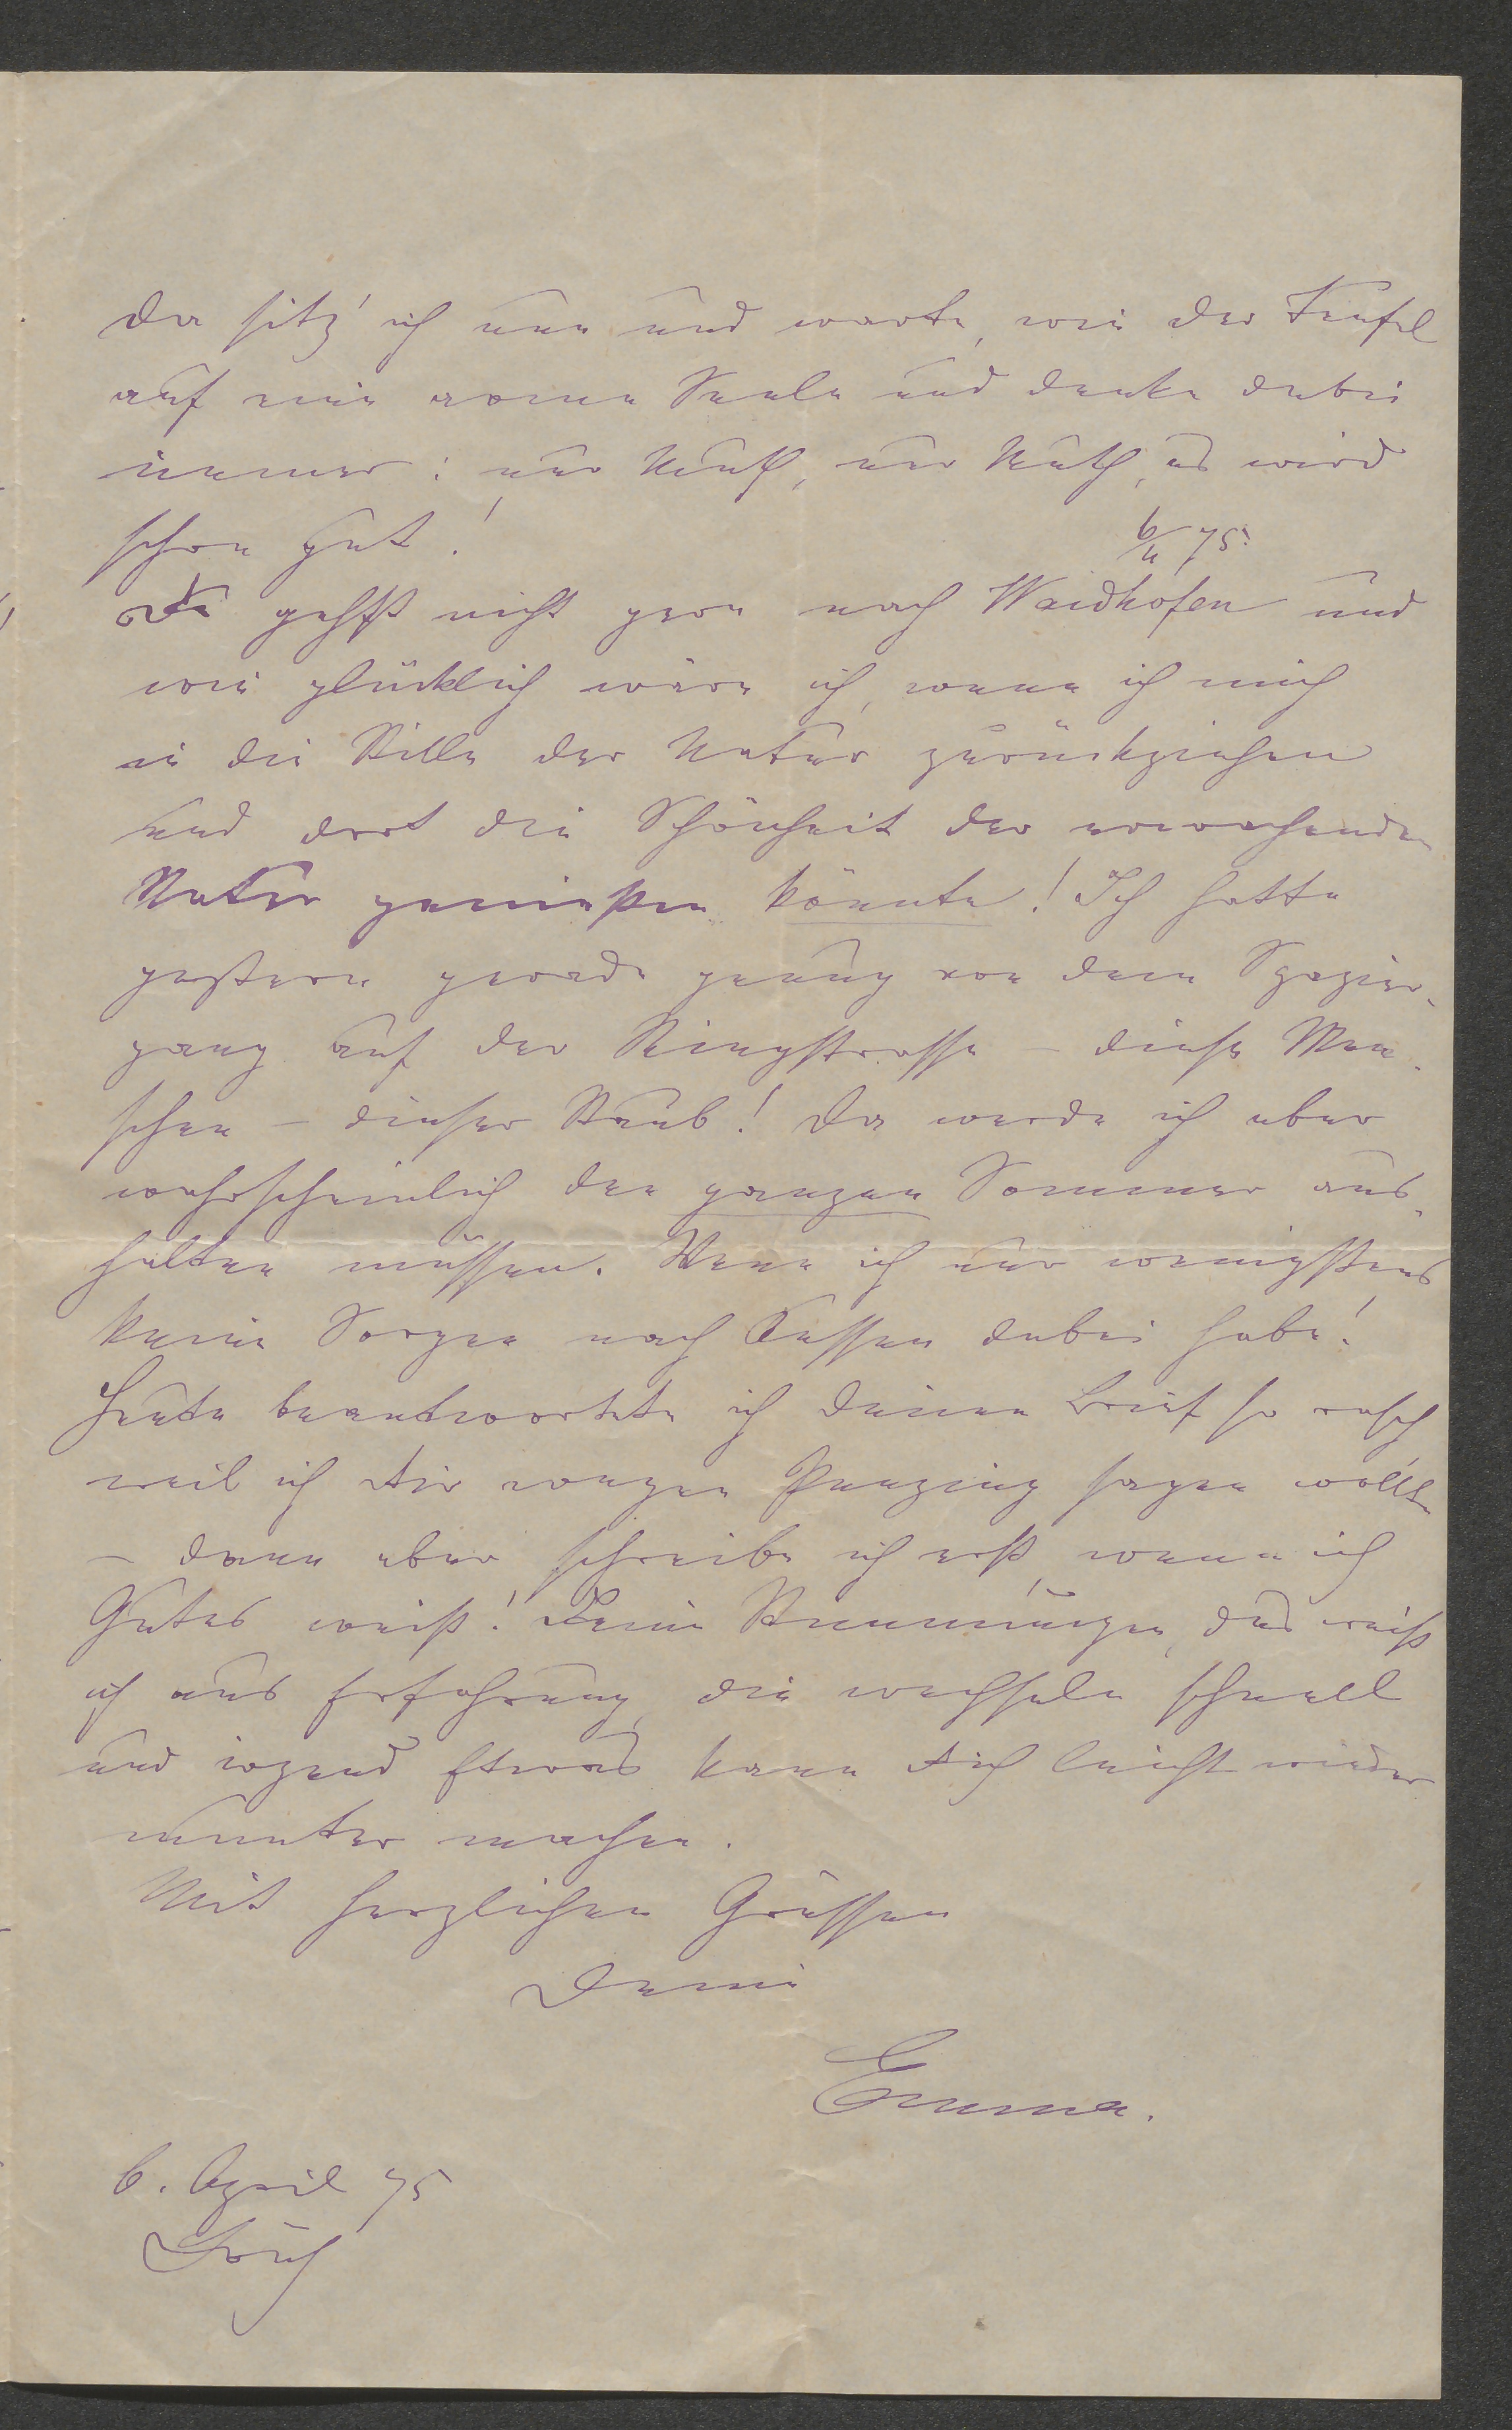 Da sitz' ich nun und warte, wie der Teufel
auf eine arme Seele und denke dabei
immer: nur Muth, nur Muth, es wird
schon gut!
6/4 75.
Du gehst nicht gern nach Waidhofen und
wie glücklich wäre ich, wenn ich mich
in die Stille der Natur zurückziehen
und dort die Schönheit der erwachenden
Natur genießen könnte! Ich hatte
gestern gerade genug von dem Spazier-
gang auf der Ringstrasse – diese Men-
schen – dieser Staub! Da werde ich aber
wahrscheinlich den ganzen Sommer aus-
halten müssen. Wenn ich nur wenigstens
keine Sorgen nach Aussen dabei habe!
Heute beantwortete ich Deinen Brief so rasch
weil ich Dir wegen Penzing sagen wollte
– dann aber schreibe ich erst, wenn ich
Gutes weiß! Deine Stimmungen, das weiß
ich aus Erfahrung, die wechseln schnell
und irgend Etwas kann Dich leicht wieder
munter machen.
Mit herzlichen Grüssen
Deine
Emma.
6. April 75
Früh